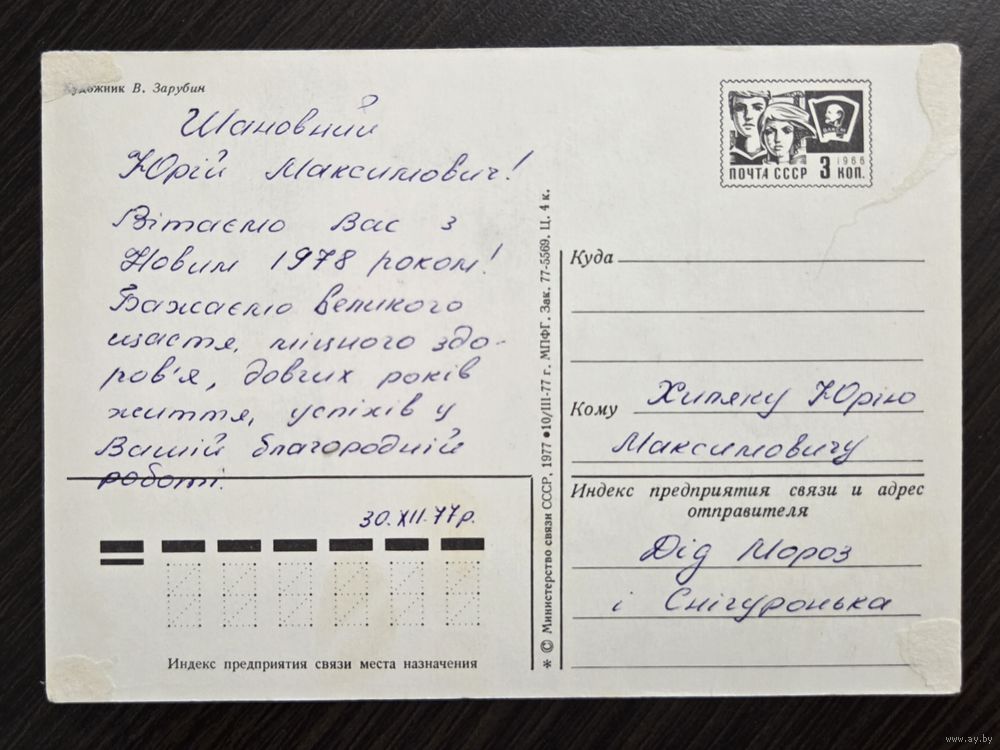 Художник В. Зарубин
Шановний
Юрій Максимович!
Вітаємо Вас з
Новим 1978 роком!
Бажаємо великого
щастя, міцного здо-
ров'я, довгих років
життя, успіхів у
Вашій благородній
роботі.
30.XII.77р.
Индекс предприятия связи места назначения
* © Министерство связи СССР, 1977 • 10/III-77 г. МПФГ. Зак. 77-5569. Ц. 4 к.
ВЛКСМ
1966
ПОЧТА СССР 3 КОП.
Куда
Кому Хипяку Юрію
Максимовичу
Индекс предприятия связи и адрес
отправителя
Дід Мороз
і Снігуронька
www.ay.by